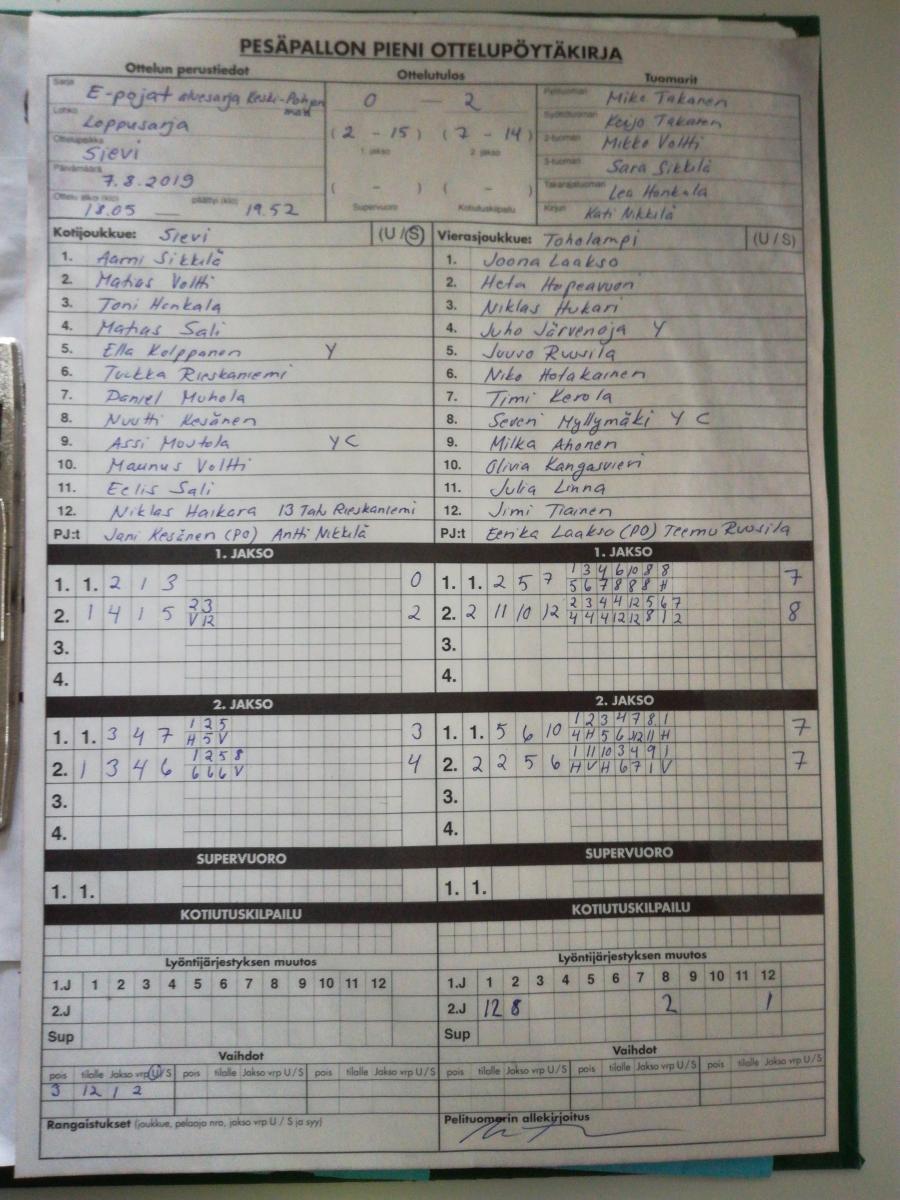 PESÄPALLON PIENI OTTELUPÖYTÄKIRJA
Ottelun perustiedot Ottelutulos Tuomarit
Sarja E-pojat aluesarja Keski-Pohjan maa
Lohko Loppusarja
Ottelupaikka Sievi
Päivämäärä 7.8.2019
Ottelu alkoi (klo) 18.05 — päättyi (klo) 19.52
0 — 2
(2 - 15) (7 - 14)
1. jakso 2. jakso
( - ) ( - )
Supervuoro Kotiutuskilpailu
Pelituomari Mike Takanen
Syöttötuomari Keijo Takanen
2-tuomari Mikko Voltti
3-tuomari Sara Sikkilä
Takarajatuomari Lea Honkala
Kirjuri Kati Nikkilä
Kotijoukkue: Sievi (U / S)
1. Aarni Sikkilä
2. Matias Voltti
3. Toni Honkala
4. Matias Sali
5. Ella Kolppanen Y
6. Tuukka Rieskaniemi
7. Daniel Muhola
8. Nuutti Kesänen
9. Assi Moutola Y C
10. Maunus Voltti
11. Eelis Sali
12. Niklas Haikara 13 Tatu Rieskaniemi
PJ:t Jani Kesänen (PO) Antti Nikkilä
Vierasjoukkue: Toholampi (U / S)
1. Joona Laakso
2. Heta Hopeavuori
3. Niklas Hukari
4. Juho Järvenoja Y
5. Juuso Ruusila
6. Niko Hotakainen
7. Timi Kerola
8. Severi Myllymäki Y C
9. Milka Ahonen
10. Olivia Kangasvieri
11. Julia Linna
12. Jimi Tiainen
PJ:t Eerika Laakso (PO) Teemu Ruusila
1. JAKSO
1. 1. 2 1 3 0
2. 1 4 1 5 2 3 2
V 12
3.
4.
1. JAKSO
1. 1. 2 5 7 1 3 4 6 10 8 8 7
5 6 7 8 8 8 H
2. 2 11 10 12 2 3 4 4 12 5 6 7 8
4 4 4 12 12 8 1 2
3.
4.
2. JAKSO
1. 1. 3 4 7 1 2 5 3
H 5 V
2. 1 3 4 6 1 2 5 8 4
6 6 6 V
3.
4.
2. JAKSO
1. 1. 5 6 10 1 2 3 4 7 8 1 7
4 H 5 6 12 11 H
2. 2 2 5 6 1 11 10 3 4 9 1 7
H V H 6 7 1 V
3.
4.
SUPERVUORO
1. 1.
SUPERVUORO
1. 1.
KOTIUTUSKILPAILU
KOTIUTUSKILPAILU
Lyöntijärjestyksen muutos
1.J 1 2 3 4 5 6 7 8 9 10 11 12
2.J
Sup
Lyöntijärjestyksen muutos
1.J 1 2 3 4 5 6 7 8 9 10 11 12
2.J 12 8 2 1
Sup
Vaihdot
pois tilalle Jakso vrp U / S pois tilalle Jakso vrp U / S pois tilalle Jakso vrp U / S
3 12 1 2
Vaihdot
pois tilalle Jakso vrp U / S pois tilalle Jakso vrp U / S pois tilalle Jakso vrp U / S
Rangaistukset (joukkue, pelaaja nro, jakso vrp U / S ja syy)
Pelituomarin allekirjoitus